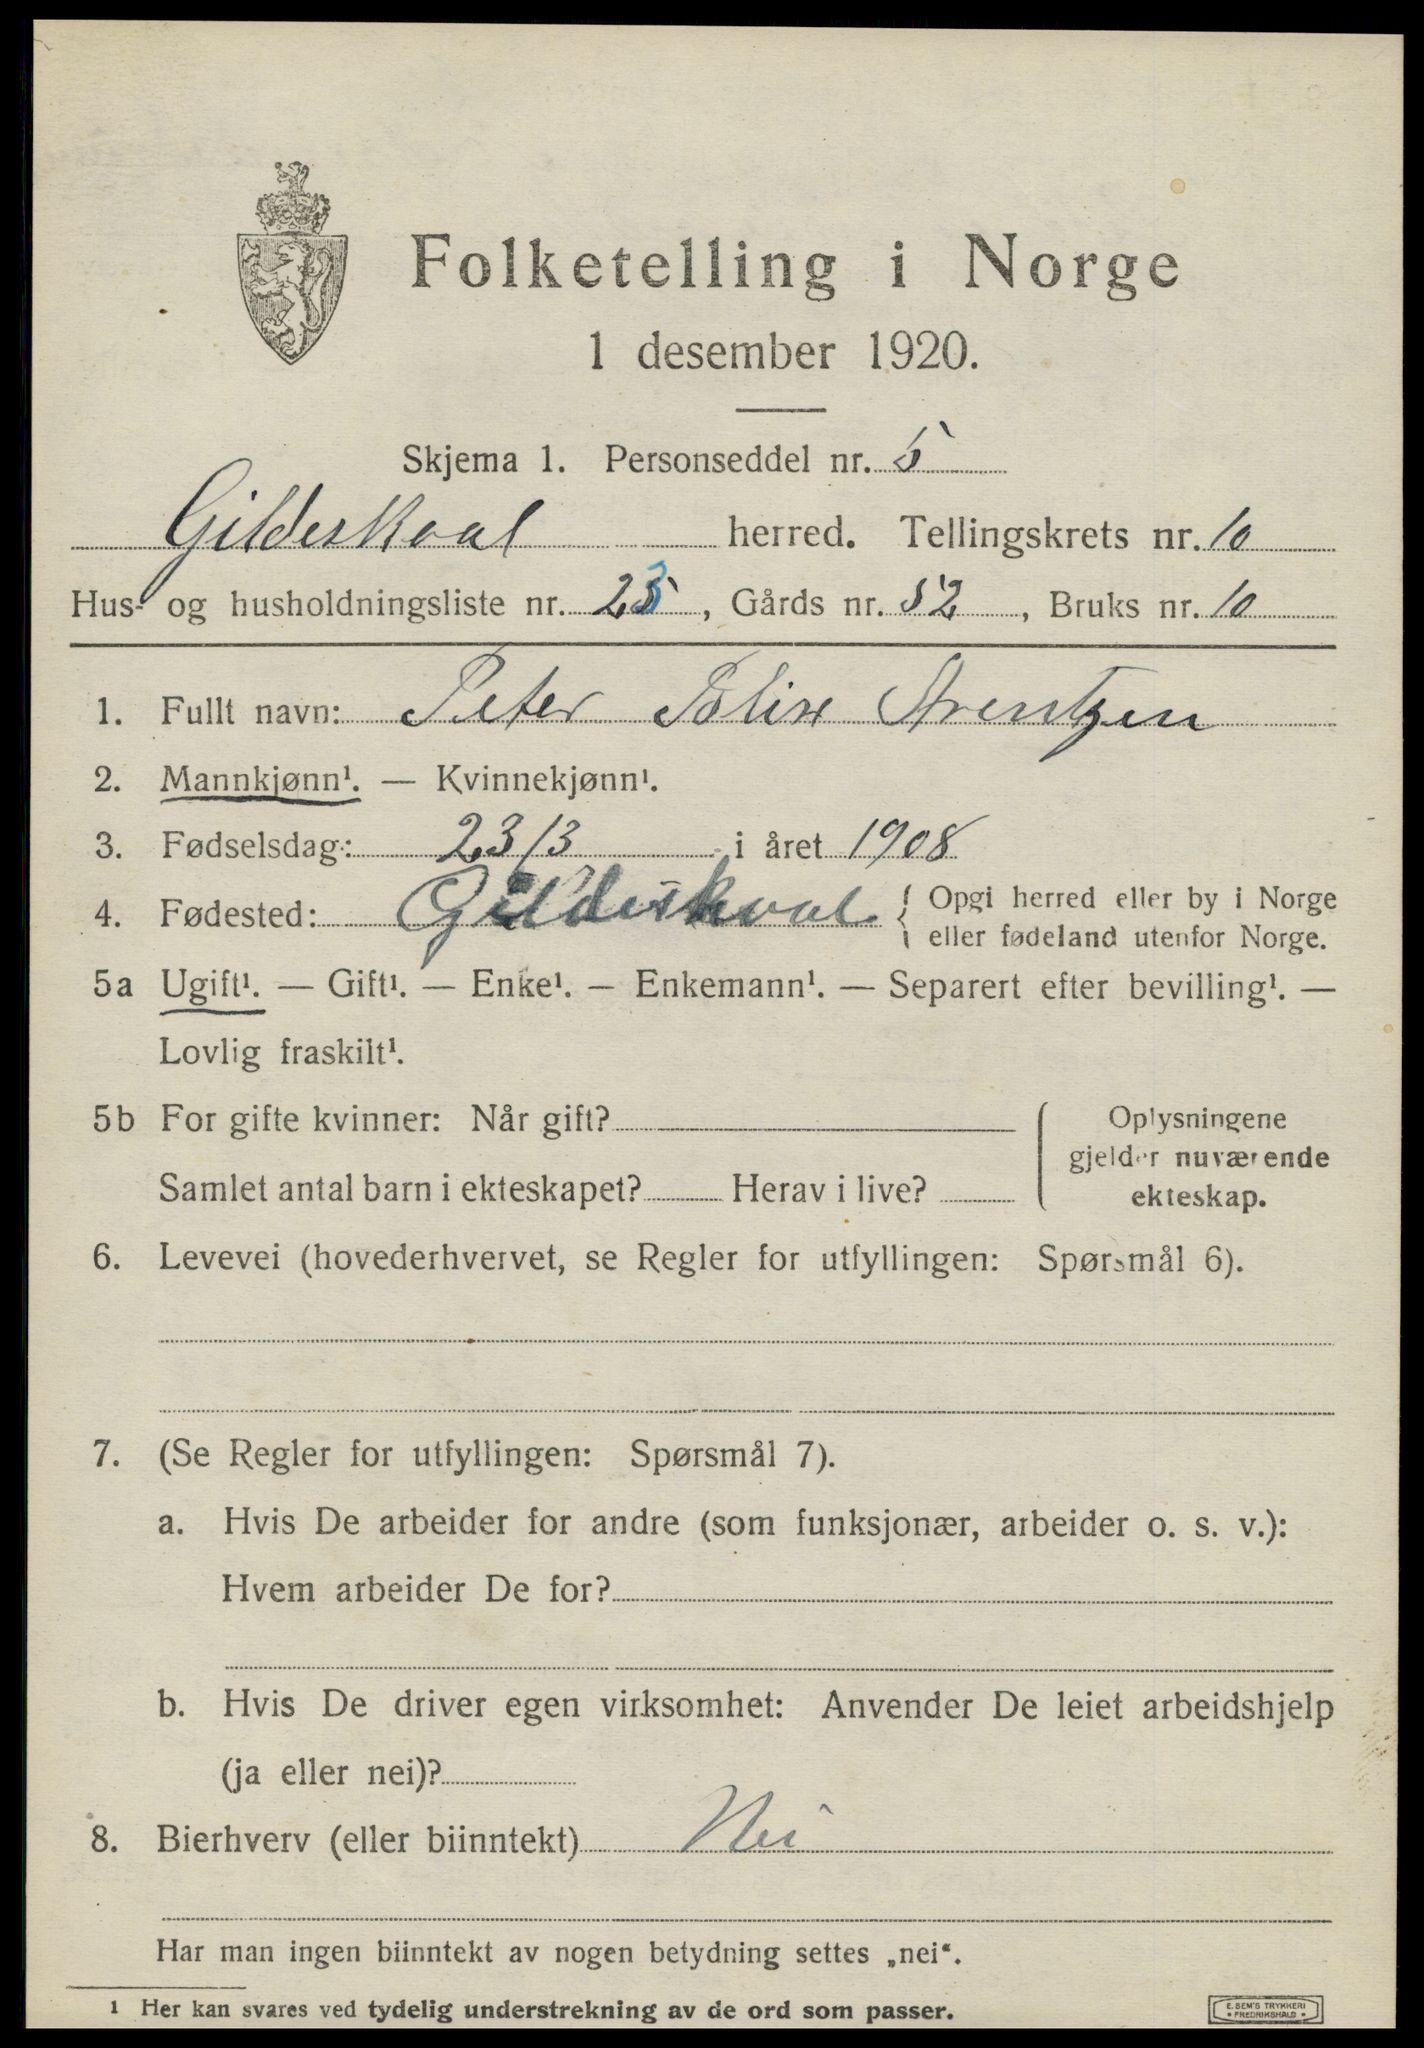 Folketelling i Norge
1 desember 1920.
Skjema 1. Personseddel nr. 5
Gildeskaal herred. Tellingskrets nr. 10
Hus- og husholdningsliste nr. 23, Gårds nr. 52, Bruks nr. 10
1. Fullt navn: Peter Arentzen
2. Mannkjønn¹. — Kvinnekjønn¹.
3. Fødselsdag: 23/3 i året 1908
4. Fødested: Gildeskaal { Opgi herred eller by i Norge
eller fødeland utenfor Norge.
5a Ugift¹. — Gift¹. — Enke¹. — Enkemann¹. — Separert efter bevilling¹. —
Lovlig fraskilt¹.
5b For gifte kvinner: Når gift?
Samlet antal barn i ekteskapet? Herav i live?
Oplysningene
gjelder nuværende
ekteskap.
6. Levevei (hovederhvervet, se Regler for utfyllingen: Spørsmål 6).
7. (Se Regler for utfyllingen: Spørsmål 7).
a. Hvis De arbeider for andre (som funksjonær, arbeider o. s. v.):
Hvem arbeider De for?
b. Hvis De driver egen virksomhet: Anvender De leiet arbeidshjelp
(ja eller nei)?
8. Bierhverv (eller biinntekt) Nei
Har man ingen biinntekt av nogen betydning settes „nei“.
1 Her kan svares ved tydelig understrekning av de ord som passer.
E. SEM'S TRYKKERI
• FREDRIKSHALD •